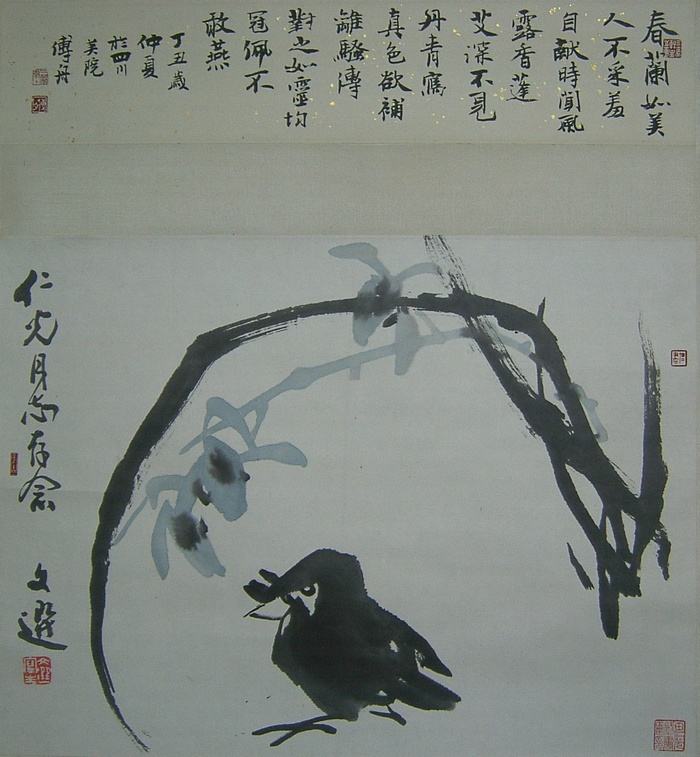 春蘭如美
人不采羞
自献時聞風
露香蓬
艾深不見
丹青寫
真色欲補
離騷傳
對之如靈均
冠佩不
敢燕
丁丑歲
仲夏
於四川
美院
傅舟
仁光同志存念
文選